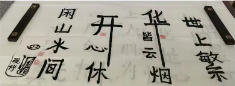 世上繁
华皆云烟
开心休
闲山水间